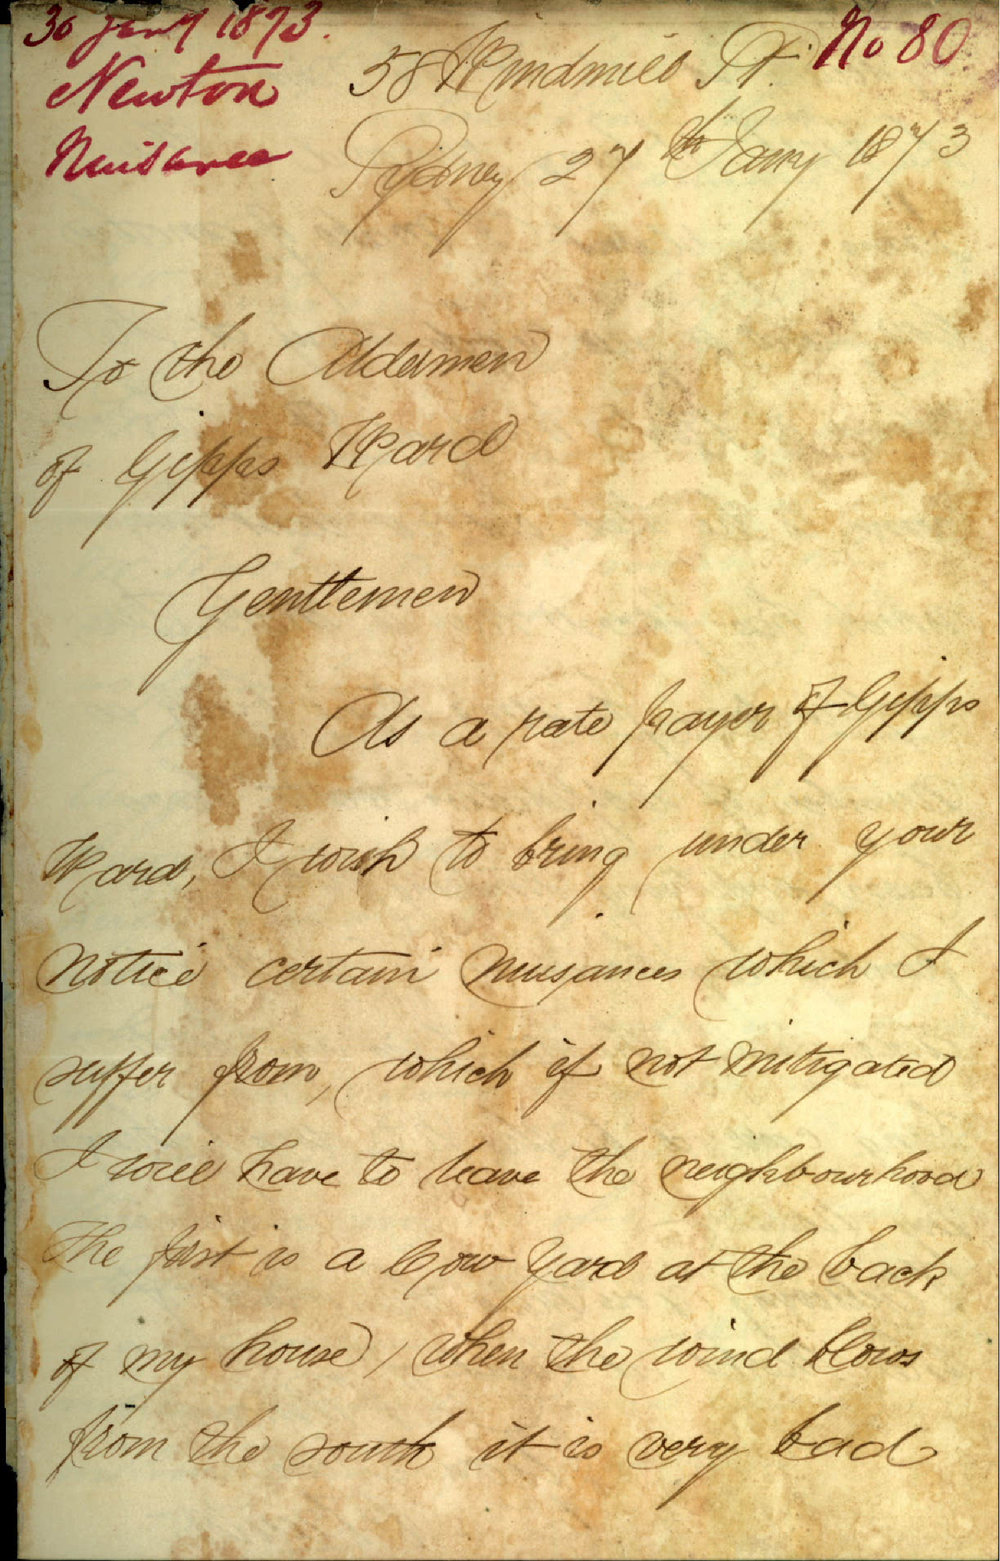 30 Jany 1873.
Newton
Nuisance
No 80
58 Windmill St.
Sydney 27th Jany 1873
To the Aldermen
of Gipps Ward
Gentlemen
As a rate payer of Gipps
Ward, I wish to bring under your
notice certain nusances which I
suffer from, which if not mitigated
I will have to leave the neighbourhood
The first is a Cow Yard at the back
of my house, when the wind blows
from the south it is very bad